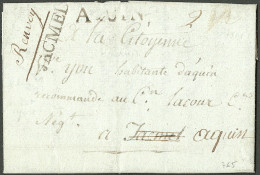 Renvoy
JACMEL
A
2
a la Citoyenne
you habitante d'aquin
recommande au Cn lacour Cn
Negt
a Jacmel aquin
765